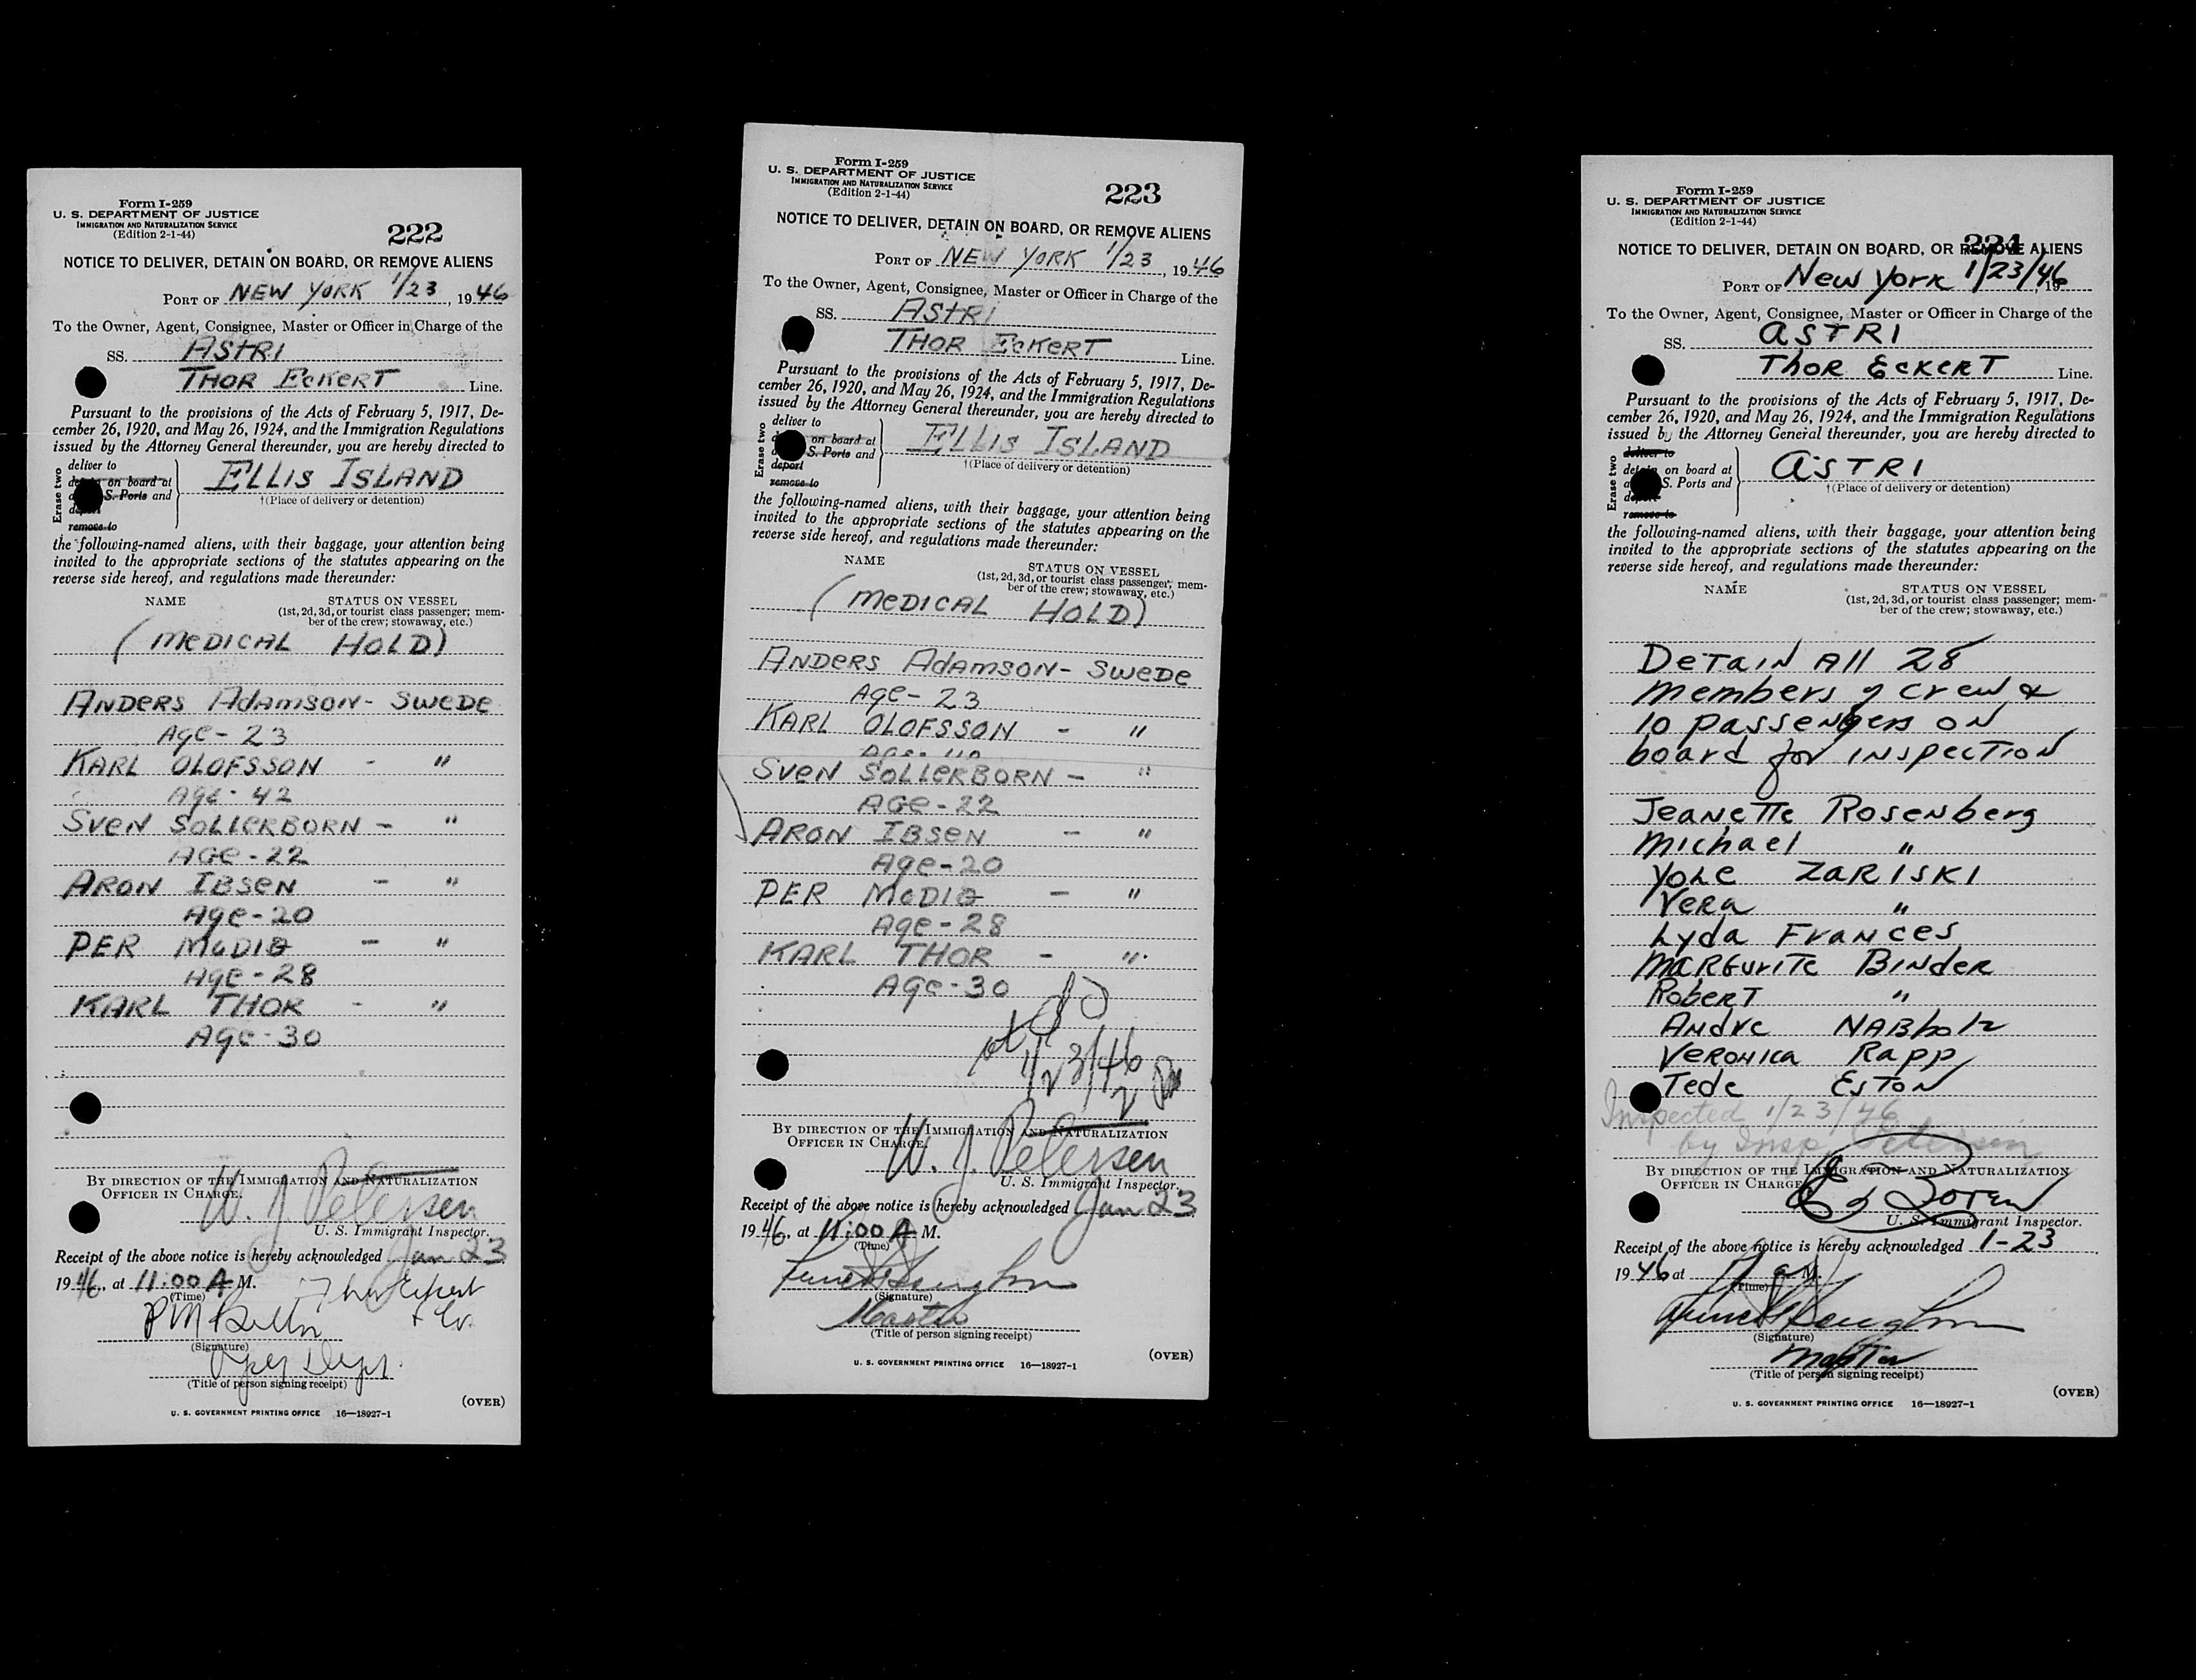 Form I-259
U. S. DEPARTMENT OF JUSTICE
IMMIGRATION AND NATURALIZATION SERVICE
(Edition 2-1-44)
222
NOTICE TO DELIVER, DETAIN ON BOARD, OR REMOVE ALIENS
PORT OF NEW YORK 1/23, 1946
To the Owner, Agent, Consignee, Master or Officer in Charge of the
SS. ASTRI
THOR ECKERT Line.
Pursuant to the provisions of the Acts of February 5, 1917, De-
cember 26, 1920, and May 26, 1924, and the Immigration Regulations
issued by the Attorney General thereunder, you are hereby directed to
Erase two
deliver to
on board at
S. Ports and
remove to
ELLIS ISLAND
†(Place of delivery or detention)
the following-named aliens, with their baggage, your attention being
invited to the appropriate sections of the statutes appearing on the
reverse side hereof, and regulations made thereunder:
NAME STATUS ON VESSEL
(1st, 2d, 3d, or tourist class passenger; mem-
ber of the crew; stowaway, etc.)
(MEDICAL HOLD)
ANDERS ADAMSON - SWEDE
Age - 23
KARL OLOFSSON - "
Age - 42
SVEN SOLLERBORN - "
AGE - 22
ARON IBSEN - "
Age - 20
PER - "
Age - 28
KARL THOR - "
Age - 30
BY DIRECTION OF THE IMMIGRATION AND NATURALIZATION
OFFICER IN CHARGE.
W. J. Petersen
U. S. Immigrant Inspector.
Receipt of the above notice is hereby acknowledged Jan 23
1946, at 11:00 A M. Thor Eckert
(Time)
& Co.
(Signature)
(Title of person signing receipt)
(OVER)
U. S. GOVERNMENT PRINTING OFFICE 16—18927-1
Form I-259
U. S. DEPARTMENT OF JUSTICE
IMMIGRATION AND NATURALIZATION SERVICE
(Edition 2-1-44)
223
NOTICE TO DELIVER, DETAIN ON BOARD, OR REMOVE ALIENS
PORT OF NEW YORK 1/23, 1946
To the Owner, Agent, Consignee, Master or Officer in Charge of the
SS. ASTRI
THOR ECKERT Line.
Pursuant to the provisions of the Acts of February 5, 1917, De-
cember 26, 1920, and May 26, 1924, and the Immigration Regulations
issued by the Attorney General thereunder, you are hereby directed to
Erase two
deliver to
on board at
S. Ports and
deport
remove to
ELLIS ISLAND
†(Place of delivery or detention)
the following-named aliens, with their baggage, your attention being
invited to the appropriate sections of the statutes appearing on the
reverse side hereof, and regulations made thereunder:
NAME STATUS ON VESSEL
(1st, 2d, 3d, or tourist class passenger; mem-
ber of the crew; stowaway, etc.)
(MEDICAL HOLD)
ANDERS ADAMSON - SWEDE
Age - 23
KARL OLOFSSON - "
SVEN SOLLERBORN - "
AGE - 22
ARON IBSEN - "
Age - 20
PER - "
Age - 28
KARL THOR - "
Age - 30
at
1/23/46
BY DIRECTION OF THE IMMIGRATION AND NATURALIZATION
OFFICER IN CHARGE.
W. J. Petersen
U. S. Immigrant Inspector.
Receipt of the above notice is hereby acknowledged Jan 23
1946, at 11:00 A M.
(Time)
(Signature)
Master
(Title of person signing receipt)
(OVER)
U. S. GOVERNMENT PRINTING OFFICE 16—18927-1
Form I-259
U. S. DEPARTMENT OF JUSTICE
IMMIGRATION AND NATURALIZATION SERVICE
(Edition 2-1-44)
224
NOTICE TO DELIVER, DETAIN ON BOARD, OR REMOVE ALIENS
PORT OF New York 1/23/46, 19
To the Owner, Agent, Consignee, Master or Officer in Charge of the
SS. ASTRI
THOR ECKERT Line.
Pursuant to the provisions of the Acts of February 5, 1917, De-
cember 26, 1920, and May 26, 1924, and the Immigration Regulations
issued by the Attorney General thereunder, you are hereby directed to
Erase two
deliver to
detain on board at
S. Ports and
remove to
ASTRI
†(Place of delivery or detention)
the following-named aliens, with their baggage, your attention being
invited to the appropriate sections of the statutes appearing on the
reverse side hereof, and regulations made thereunder:
NAME STATUS ON VESSEL
(1st, 2d, 3d, or tourist class passenger; mem-
ber of the crew; stowaway, etc.)
Detain All 28
members of crew &
10 passengers on
board for inspection
Jeanette Rosenberg
Michael "
Yole ZARISKI
Vera "
Lyda Frances
Margurite Binder
Robert "
Andre NABholz
Veronica Rapp
Tede Eston
Inspected 1/23/46
by Insp. Petersen
BY DIRECTION OF THE IMMIGRATION AND NATURALIZATION
OFFICER IN CHARGE
U. S. Immigrant Inspector.
Receipt of the above notice is hereby acknowledged 1-23
1946 at a M.
(Time)
(Signature)
Master
(Title of person signing receipt)
(OVER)
U. S. GOVERNMENT PRINTING OFFICE 16—18927-1